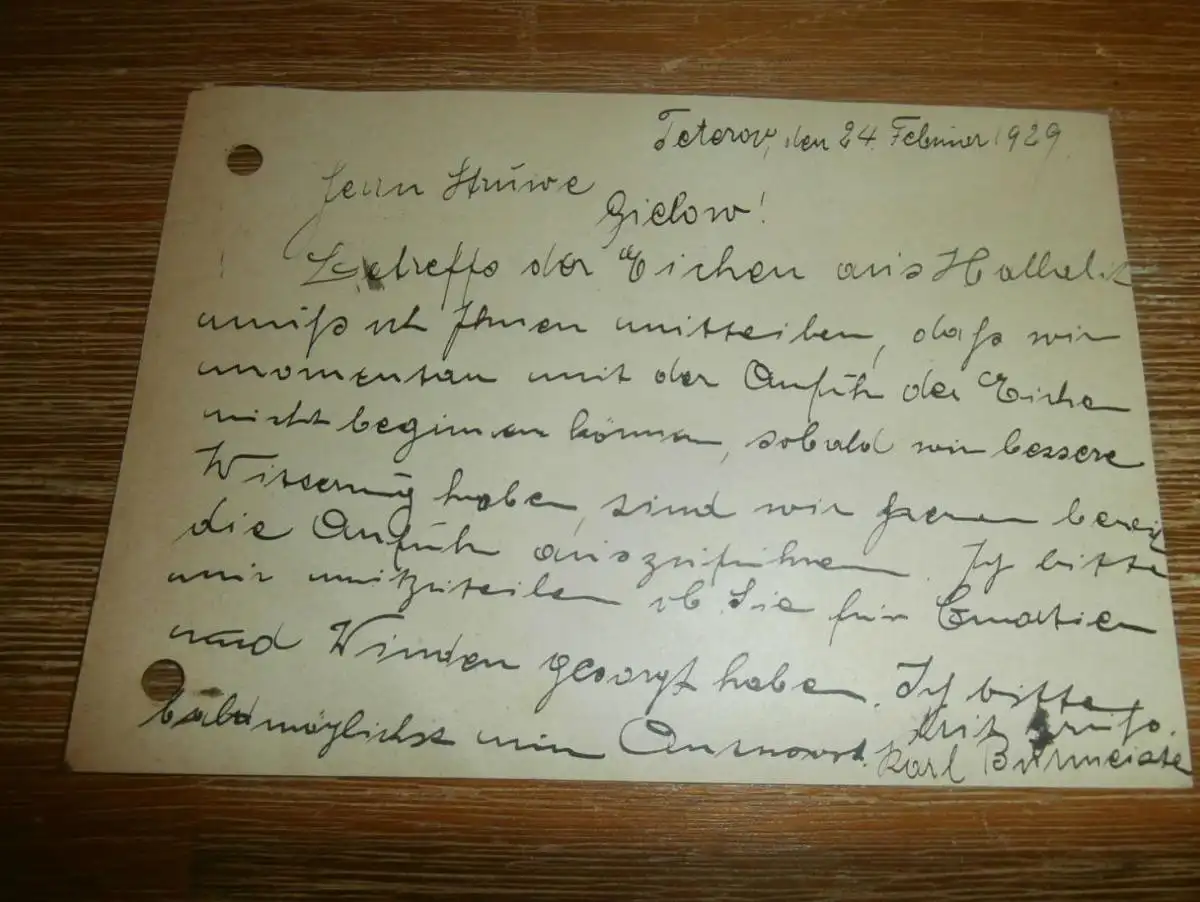 Teterow, den 24. Februar 1929.
Herrn Struwe
Gielow!
Betreffs der Eichen aus
muß ich Ihnen mitteilen, daß wir
momentan mit der Anfuhr der Eichen
nicht beginnen können, sobald wir bessere
Witterung haben, sind wir gerne bereit
die Anfuhr auszuführen. Ich bitte
mir mitzuteilen ob Sie für
und Winden gesorgt haben. Ich bitte
baldmöglichst um Antwort.
Mit Gruß.
Karl Burmeister